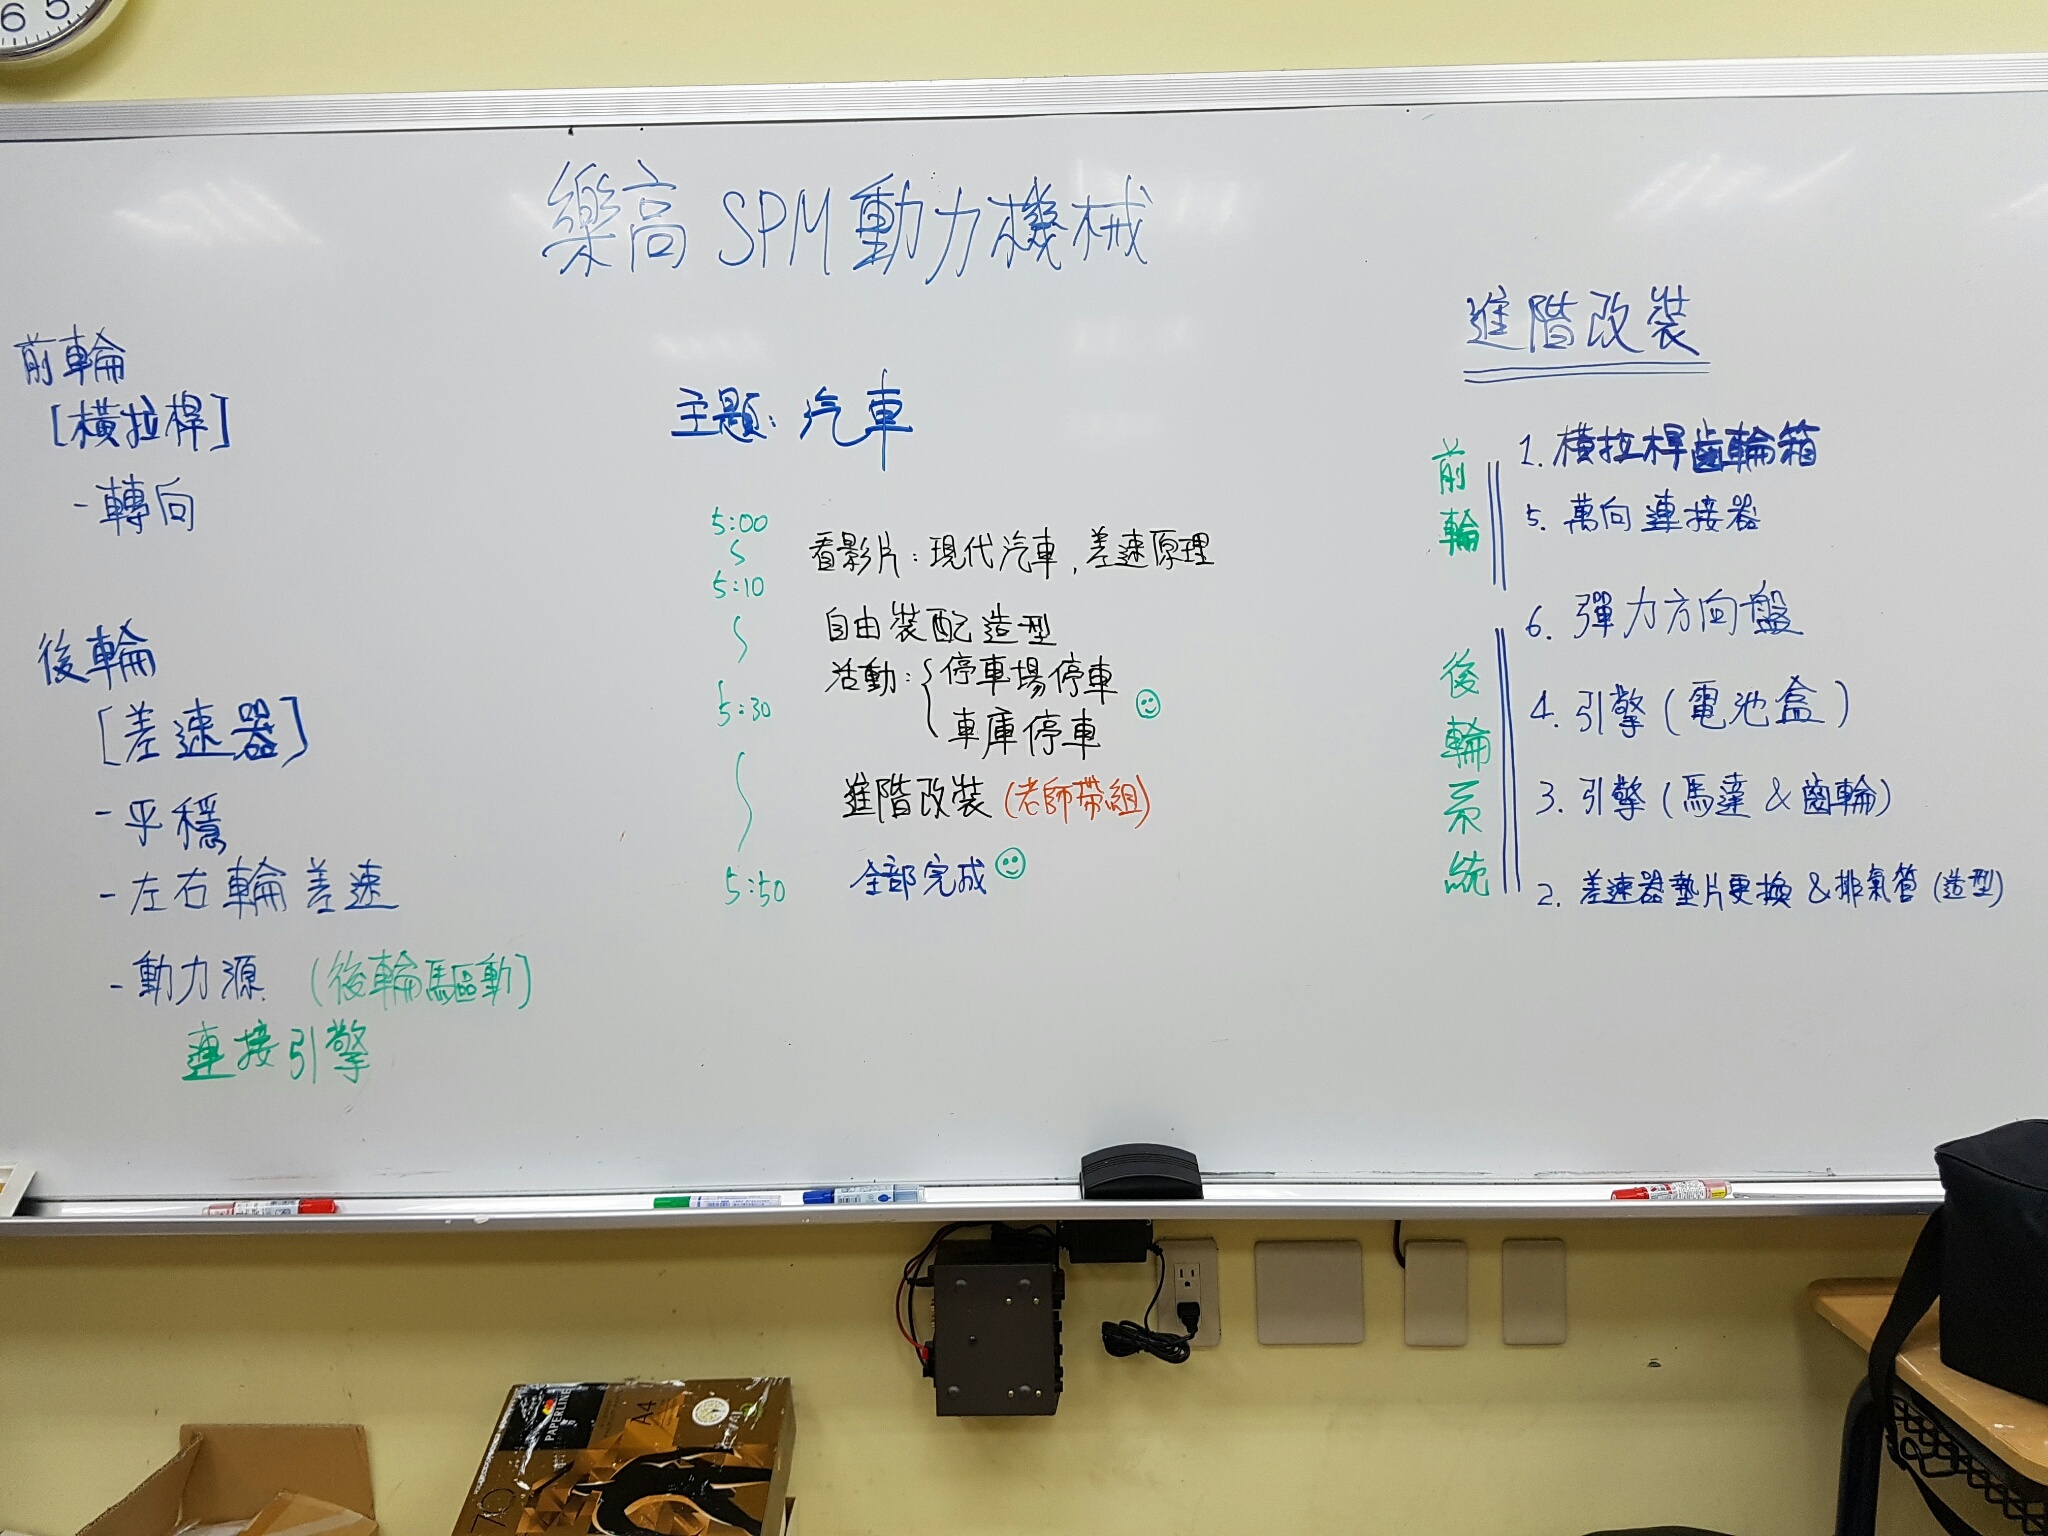 樂高 SPM 動力機械
前輪
[橫拉桿]
- 轉向
後輪
[差速器]
- 平穩
- 左右輪差速
- 動力源 (後輪驅動)
連接引擎
主題: 汽車
5:00
5:10
看影片: 現代汽車, 差速原理
自由裝配造型
活動: 停車場停車
車庫停車
5:30
進階改裝 (老師帶組)
5:50
全部完成
進階改裝
前輪
1. 橫拉桿齒輪箱
5. 萬向連接器
6. 彈力方向盤
後輪系統
4. 引擎 (電池盒)
3. 引擎 (馬達 & 齒輪)
2. 差速器墊片更換 & 排氣管 (造型)
6 5
PAPERLINE
A4
70